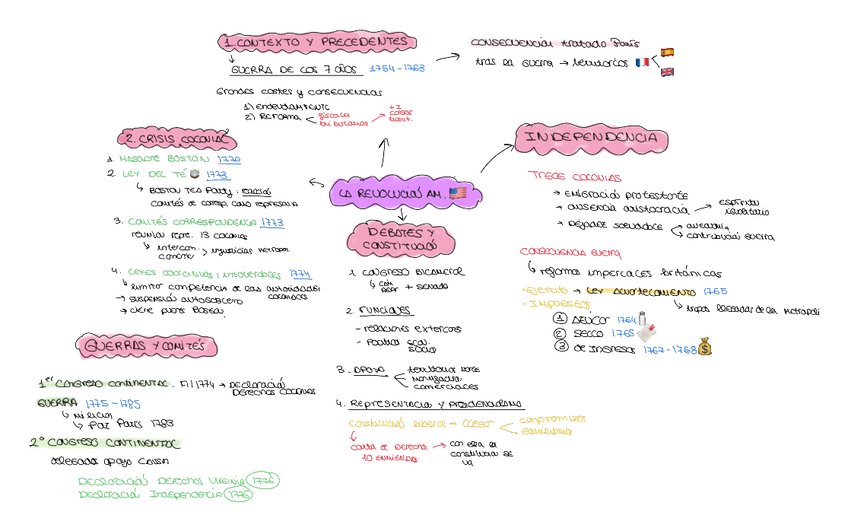 1. CONTEXTO Y PRECEDENTES
GUERRA DE LOS 7 AÑOS 1754-1763
Grandes costes y consecuencias
1) ENDEUDAMIENTO
2) REFORMA
fiscal
tributarios
CONSECUENCIAS tratado París
tras la guerra → territorios
2. CRISIS COLONIAL
1. MASACRE BOSTON 1770
2. LEY DEL TÉ 1773
BOSTON TEA Party:
comités de corresp. como represalia
3. COMITÉS CORRESPONDENCIA 1773
reunían repr. 13 colonias
4. LEYES COERCITIVAS / INTOLERABLES 1774
limitar competencia de las autoridades
coloniales
→ suspensión autogobierno
→ cierre puerto Boston
LA REVOLUCIÓN AM.
INDEPENDENCIA
TRECE COLONIAS
→ emigración protestante
→ ausencia aristocracia
espíritu
igualitario
→ Dejadez
contribución guerra
CONSECUENCIA GUERRA
reformas imperiales británicas
- Ejército → LEY ACUARTELAMIENTO 1765
tropas llegadas de la metrópoli
- IMPUESTOS
1 AZÚCAR 1764
2 SELLO 1765
3 de Ingresos 1767-1768
DEBATES Y
CONSTITUCIÓN
1. CONGRESO BICAMERAL
repr + senado
2. FUNCIONES
- relaciones exteriores
3. APOYO
comerciales
4. Representación y Presidencialismo
carta de Derechos
10 ENMIENDAS
GUERRAS Y COMITÉS
1er Congreso continental. Fil 1774 → Declaración
Derechos colonias
GUERRA 1775-1785
milicias
Paz París 1783
2º CONGRESO CONTINENTAL
delegados apoyo causa
Declaración Derechos Virginia 1776
Declaración Independencia 1776